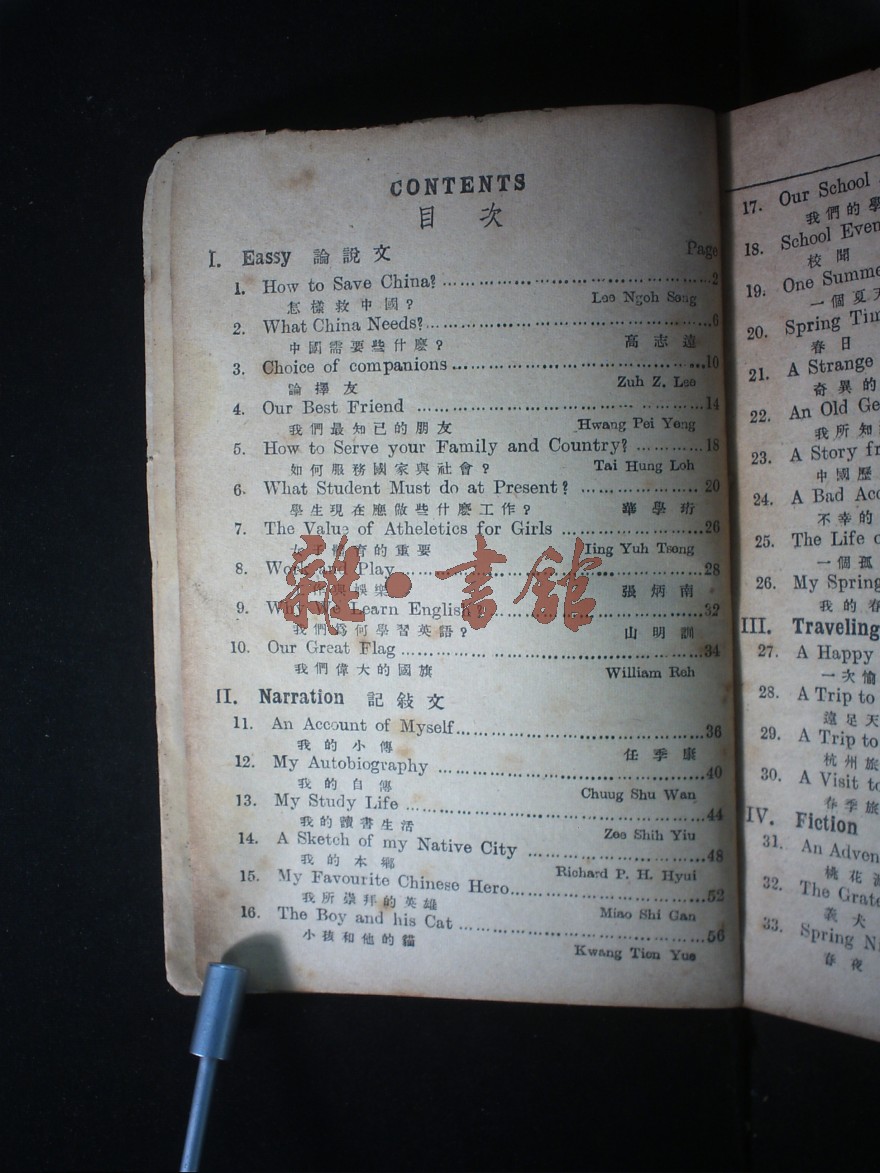 CONTENTS
目 次
I. Eassy 論說文 Page
1. How to Save China? 2
怎樣救中國? Lee Ngoh Song
2. What China Needs? 6
中國需要些什麼? 高志遠
3. Choice of companions 10
論擇友 Zuh Z. Lee
4. Our Best Friend 14
我們最知己的朋友 Hwang Pei Yong
5. How to Serve your Family and Country? 18
如何服務國家與社會? Tai Hung Loh
6. What Student Must do at Present? 20
學生現在應做些什麼工作? 華學
7. The Value of Atheletics for Girls 26
女子體育的重要 Iing Yuh Tsong
8. Work and Play 28
工作與娛樂 張炳南
9. Why We Learn English? 32
我們爲何學習英語? 山明訓
10. Our Great Flag 34
我們偉大的國旗 William Reh
II. Narration 記敍文
11. An Account of Myself 36
我的小傳 任季康
12. My Autobiography 40
我的自傳 Chuug Shu Wan
13. My Study Life 44
我的讀書生活 Zee Shih Yiu
14. A Sketch of my Native City 48
我的本鄉 Richard P. H. Hyui
15. My Favourite Chinese Hero 52
我所崇拜的英雄 Miao Shi Gan
16. The Boy and his Cat 56
小孩和他的貓 Kwang Tien Yue
17. Our School
我們的學
18. School Even
校聞
19. One Summe
一個夏天
20. Spring Tim
春日
21. A Strange
奇異的
22. An Old Ge
我所知
23. A Story fr
中國歷
24. A Bad Acc
不幸的
25. The Life o
一個孤
26. My Spring
我的春
III. Traveling
27. A Happy
一次愉
28. A Trip to
遠足天
29. A Trip to
杭州旅
30. A Visit to
春季旅
IV. Fiction
31. An Adven
桃花源
32. The Grate
義犬
33. Spring Ni
春夜
雜·書館